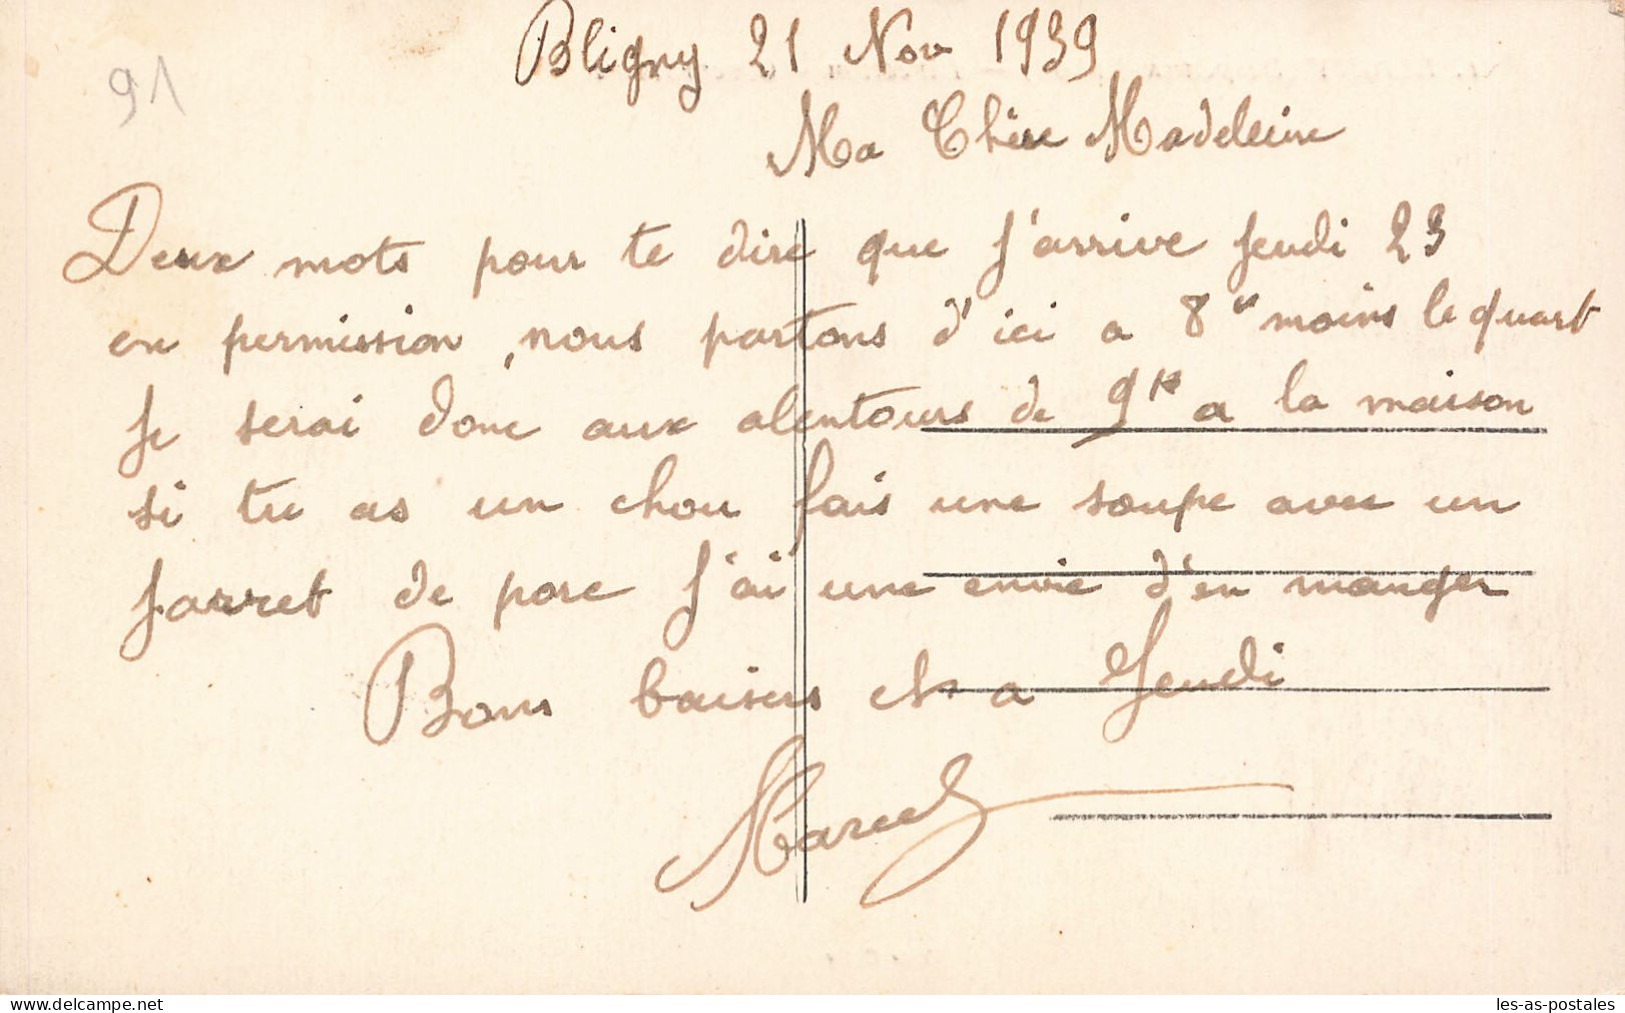 Bligny 21 Nov 1939
91
Ma Chère Madeleine
Deux mots pour te dire que j'arrive Jeudi 23
en permission, nous partons d'ici a 8h moins le quart
Je serai donc aux alentours de 9h a la maison
si tu as un chou fais une soupe avec un
jarret de porc j'ai une envie d'en manger
Bons baisers et a Jeudi
Marcel
www.delcampe.net
les-as-postales